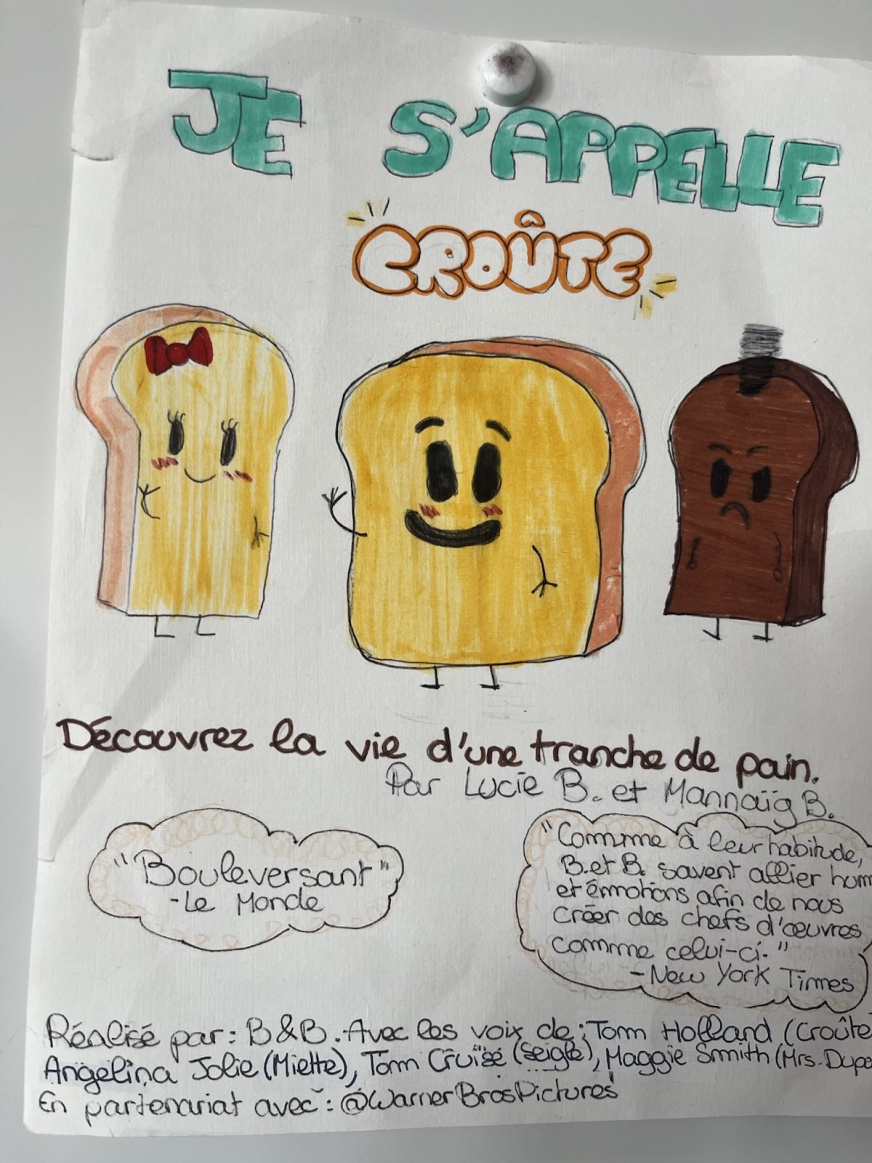 JE S'APPELLE
CROÛTE
Découvrez la vie d'une tranche de pain.
Par Lucie B. et Mannaïg B.
"Bouleversant"
-Le Monde
"Comme à leur habitude,
B. et B. savent allier hum
et émotions afin de nous
créer des chefs d'œuvres
comme celui-ci."
-New York Times
Réalisé par : B&B. Avec les voix de : Tom Holland (Croûte
Angelina Jolie (Miette), Tom Cruise (Seigle), Maggie Smith (Mrs. Dupo
En partenariat avec : @WarnerBrosPictures